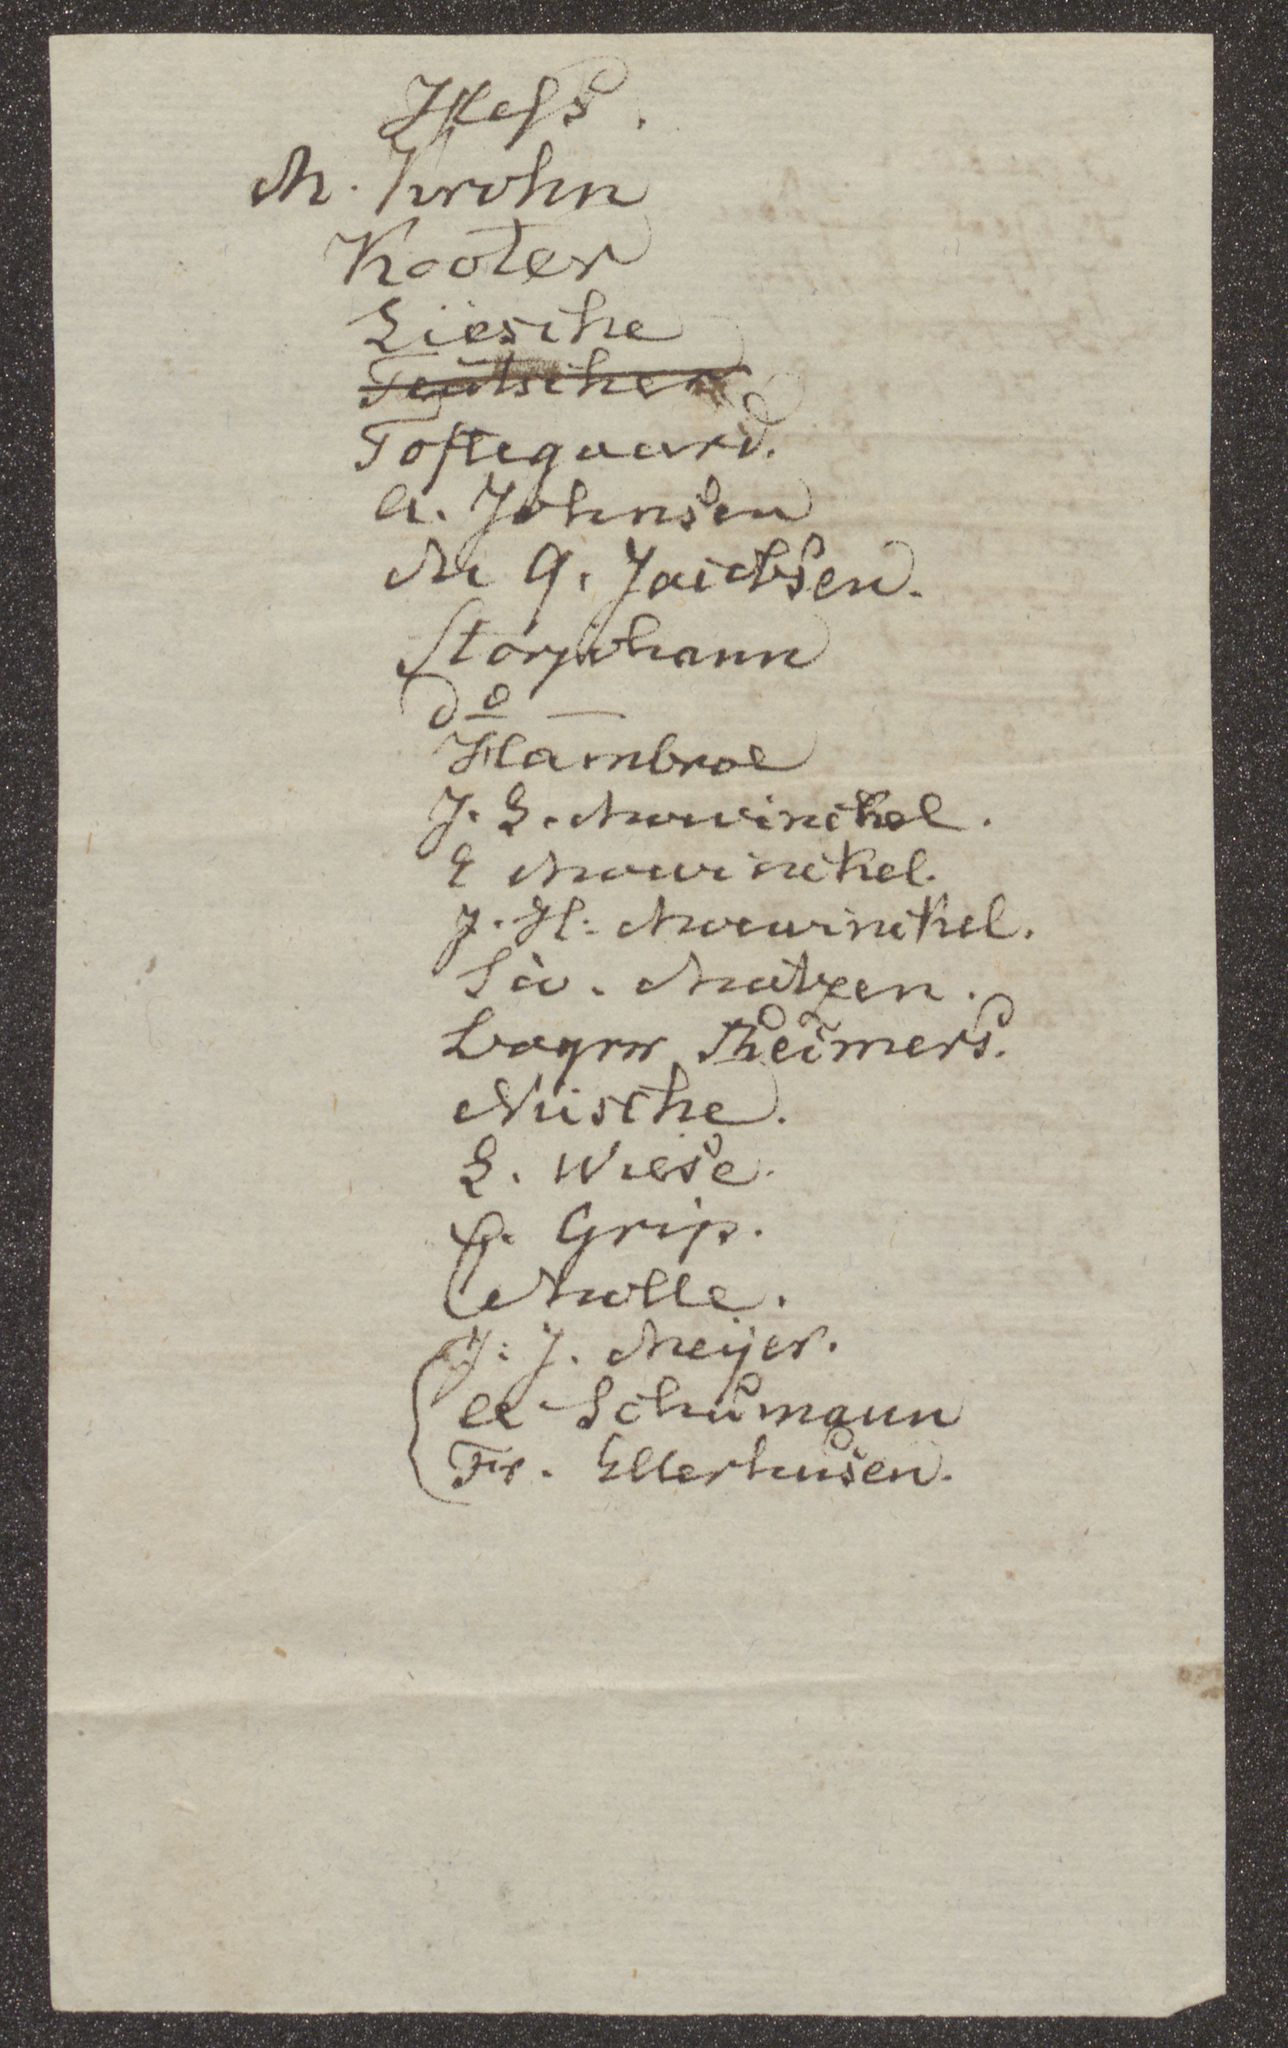 Hess.
M. Krohn
Kooter
Liesche
Teutscher
Toftegaard.
A. Johnsen
M G. Jacobsen.
Storjohann
do —
Hambroe
J. E. Mowinckel.
E Mowinckel.
J. H. Mowinckel.
Matzen.
Reimers.
Nüsche.
L. Wiese.
C. Grip.
Molle.
J: J. Meijer.
Schumann
Fr. Ellerhusen.